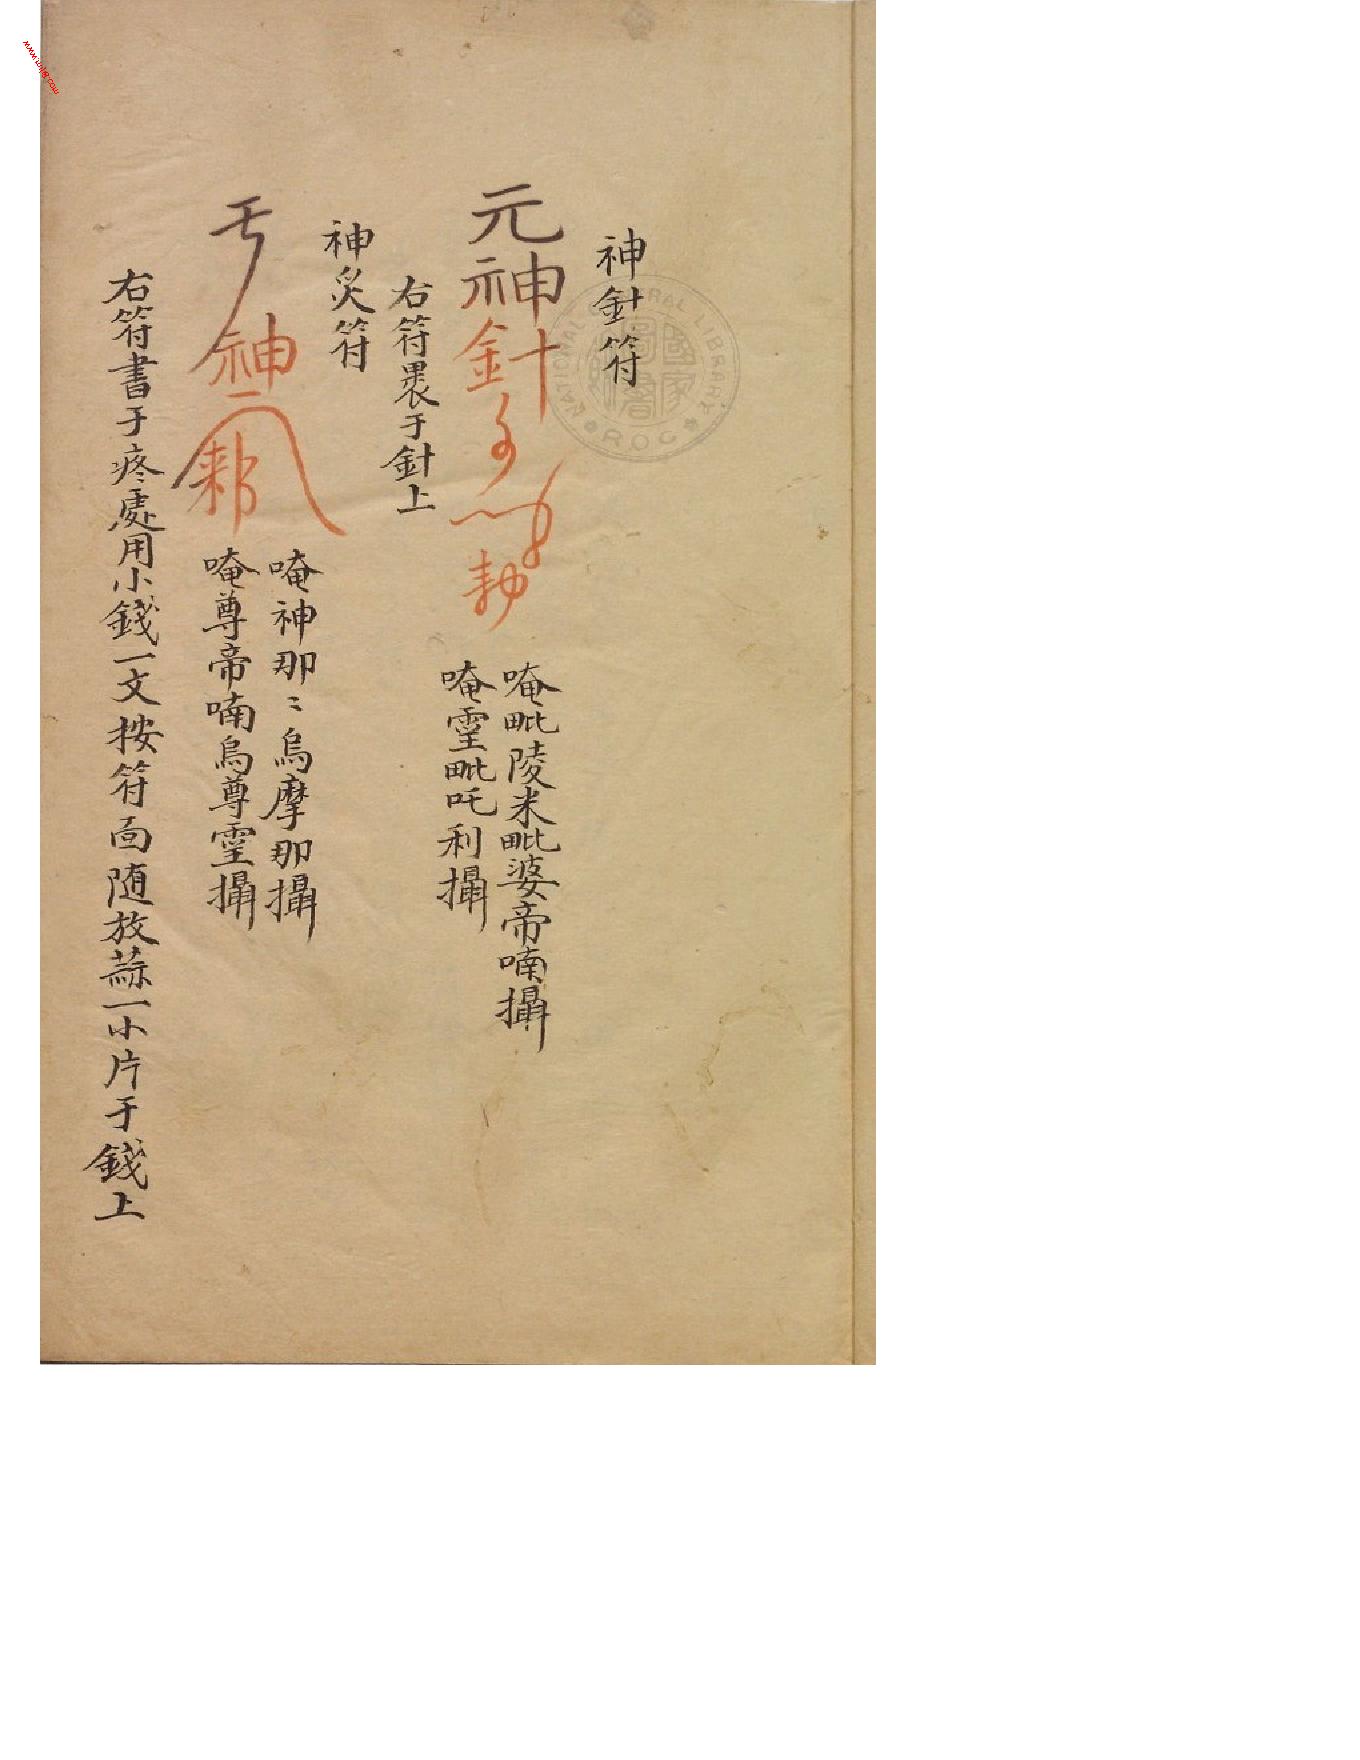 神針符
元神針
勅
唵毗陵米毗婆帝喃攝
唵霊毗吒利攝
右符褁于針上
神炙符
神
勅
唵神那〻烏摩那攝
唵尊帝喃烏尊霊攝
右符書于疼處用小錢一文按符面随放蒜一小片于錢上
NATIONAL CENTRAL LIBRARY
R.O.C
國家圖書館